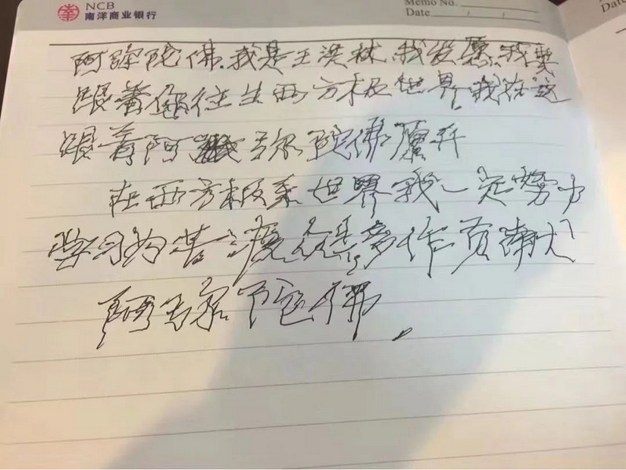 NCB
南洋商业银行
Memo No.
Date / /
Date
阿弥陀佛.我是王洪林.我发愿.我要
跟着您往生西方极世界,我
跟着阿弥陀佛
在西方极乐世界我一定努力
学习为苦众多作贡献
阿弥陀佛.